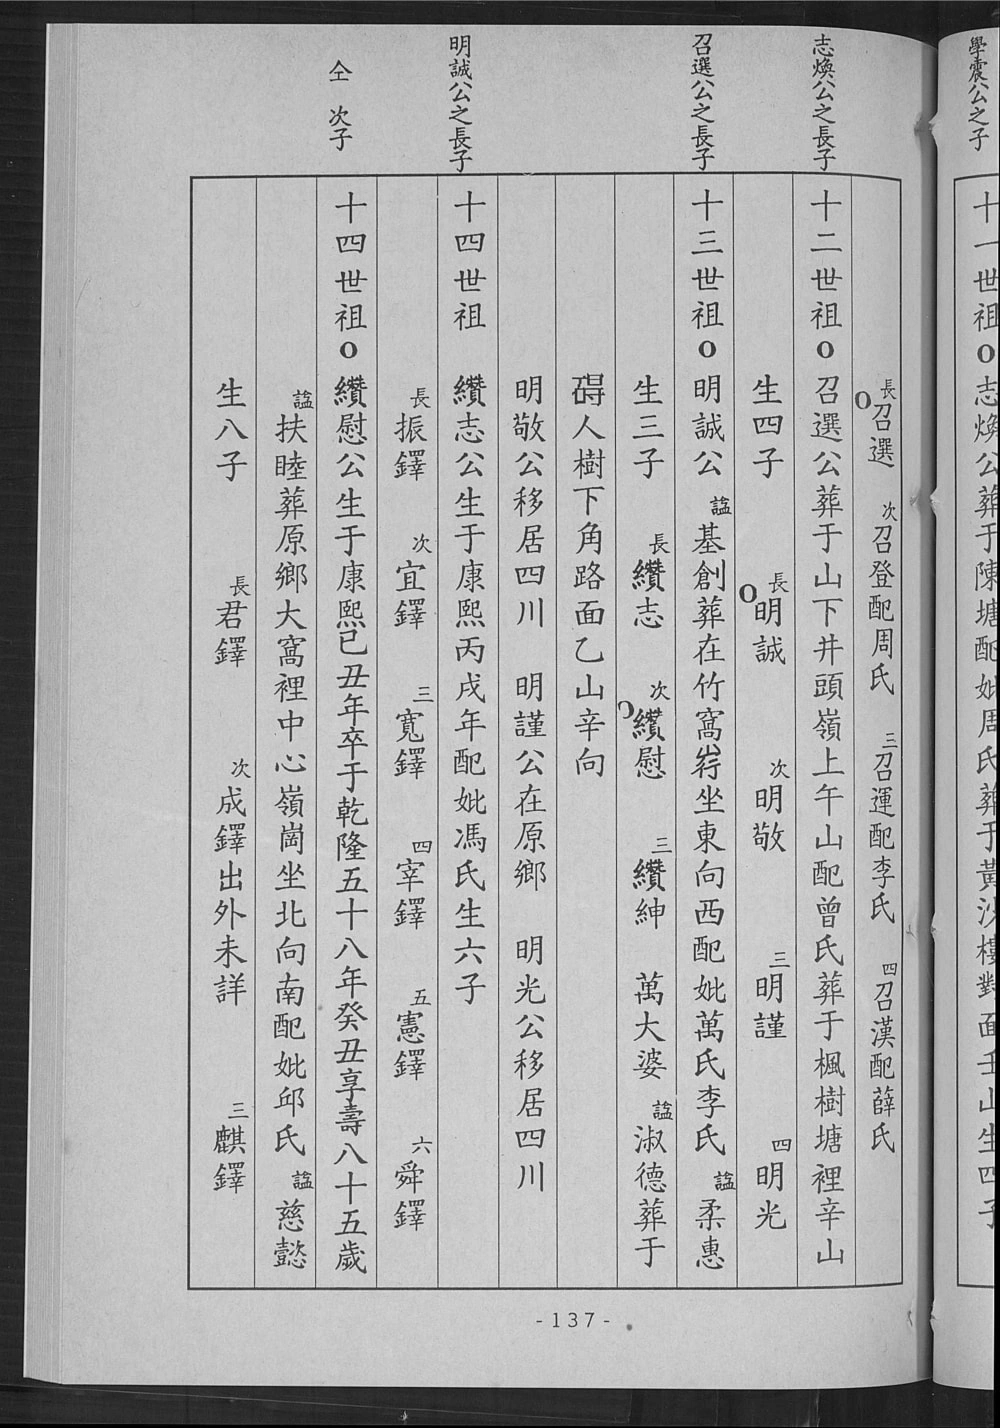 學震公之子
十一世祖O志煥公葬于陳塘配妣周氏葬于黃沙樓對面壬山生四子
長O召選 次召登配周氏 三召運配李氏 四召漢配薛氏
志煥公之長子
十二世祖O召選公葬于山下井頭嶺上午山配曾氏葬于楓樹塘裡辛山
生四子 長O明誠 次明敬 三明謹 四明光
召選公之長子
十三世祖O明誠公諡基創葬在竹窩崗坐東向西配妣萬氏李氏諡柔惠
生三子 長纘志 次O纘慰 三纘紳 萬大婆諡淑德葬于
碍人樹下角路面乙山辛向
明敬公移居四川 明謹公在原鄉 明光公移居四川
明誠公之長子
十四世祖 纘志公生于康熙丙戌年配妣馮氏生六子
長振鐸 次宜鐸 三寬鐸 四宰鐸 五憲鐸 六舜鐸
仝 次子
十四世祖O纘慰公生于康熙已丑年卒于乾隆五十八年癸丑享壽八十五歲
諡扶睦葬原鄉大窩裡中心嶺崗坐北向南配妣邱氏諡慈懿
生八子 長君鐸 次成鐸出外未詳 三麒鐸
-137-